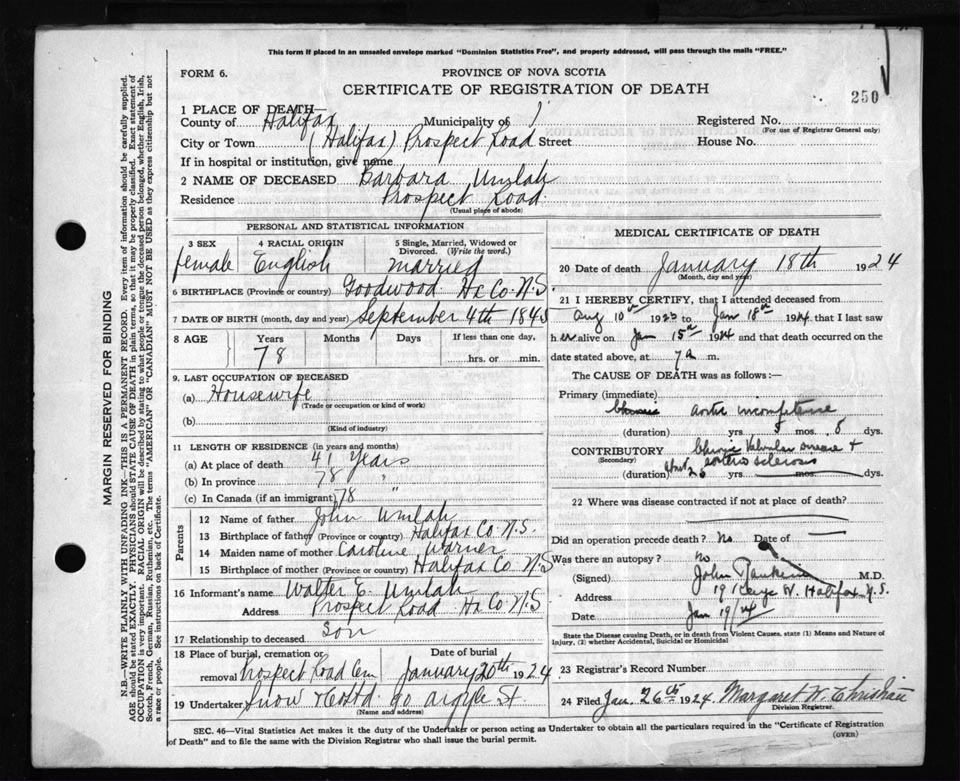 This form if placed in an unsealed envelope marked "Dominion Statistics Free", and properly addressed, will pass through the mails "FREE."
FORM 6.
PROVINCE OF NOVA SCOTIA
CERTIFICATE OF REGISTRATION OF DEATH
250
1 PLACE OF DEATH—
County of Halifax Municipality of
Registered No.
(For use of Registrar General only)
City or Town (Halifax) Prospect Road Street House No.
If in hospital or institution, give name
2 NAME OF DECEASED Barbara Umlah
Residence Prospect Road.
(Usual place of abode)
PERSONAL AND STATISTICAL INFORMATION
3 SEX 4 RACIAL ORIGIN 5 Single, Married, Widowed or Divorced. (Write the word.)
female English married
6 BIRTHPLACE (Province or country) Goodwood Hx Co. N.S.
7 DATE OF BIRTH (month, day and year) September 4th 1845
8 AGE Years Months Days If less than one day,
78 hrs. or min.
9. LAST OCCUPATION OF DECEASED
(a) Housewife
(Trade or occupation or kind of work)
(b)
(Kind of industry)
11 LENGTH OF RESIDENCE (in years and months)
(a) At place of death 41 Years
(b) In province 78 "
(c) In Canada (if an immigrant) 78 "
Parents
12 Name of father John Umlah
13 Birthplace of father (Province or country) Halifax Co N.S.
14 Maiden name of mother Caroline Warner
15 Birthplace of mother (Province or country) Halifax Co. N.S
16 Informant's name Walter E. Umlah
Address Prospect Road Hx Co N.S
17 Relationship to deceased son
18 Place of burial, cremation or removal Prospect Road Cem
Date of burial January 20th 1924
19 Undertaker Snow & Co Ltd 90 Argyle St.
(Name and address)
MEDICAL CERTIFICATE OF DEATH
20 Date of death January 18th 1924
(Month, day and year)
21 I HEREBY CERTIFY, that I attended deceased from
Aug 10th 1923 to Jan 18th 1924 that I last saw
her alive on Jan 15th 1924 and that death occurred on the
date stated above, at 7 a m.
The CAUSE OF DEATH was as follows:—
Primary (immediate)
aortic incompetence
(duration) yrs. 5 mos. 8 dys.
CONTRIBUTORY Chronic Valvular disease +
(Secondary)
arterio sclerosis
(duration) yrs. mos. dys.
22 Where was disease contracted if not at place of death?
Did an operation precede death? No Date of
Was there an autopsy? no
(Signed) John M.D.
Address Halifax N.S.
Date Jan 19/24
State the Disease causing Death, or in death from Violent Causes, state (1) Means and Nature of
Injury, (2) whether Accidental, Suicidal or Homicidal
23 Registrar's Record Number
24 Filed Jan. 26th 1924 Margaret W. Christian
Division Registrar.
SEC. 46—Vital Statistics Act makes it the duty of the Undertaker or person acting as Undertaker to obtain all the particulars required in the "Certificate of Registration
of Death" and to file the same with the Division Registrar who shall issue the burial permit.
(OVER)
MARGIN RESERVED FOR BINDING
N.B.—WRITE PLAINLY WITH UNFADING INK—THIS IS A PERMANENT RECORD. Every item of information should be carefully supplied.
AGE should be stated EXACTLY. PHYSICIANS should STATE CAUSE OF DEATH in plain terms, so that it may be properly classified. Exact statement of
OCCUPATION is very important. RACIAL ORIGIN will be described by stating to what people or tongue the deceased person belonged, whether English, Irish,
Scotch, French, German, Russian, Ruthenian, etc. The terms "AMERICAN" OR "CANADIAN" MUST NOT BE USED as they express citizenship but not
a race or people. See instructions on back of Certificate.